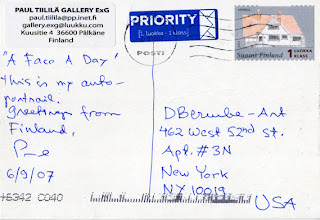 PAUL TIILILÄ GALLERY ExG
paul.tiilila@pp.inet.fi
gallery.exg@luukku.com
Kuusitie 4 36600 Pälkäne
Finland
"A Face A Day"
This is my auto-
portrait.
Greetings from
Finland,
6/9/07
15342 C040
PRIORITY
[1. luokka - 1 klass]
POSTI
Suomi Finland
1 LUOKKA
KLASS
DBerube-Ant
462 West 52nd St.
Apt. #3N
New York
NY 10019
USA